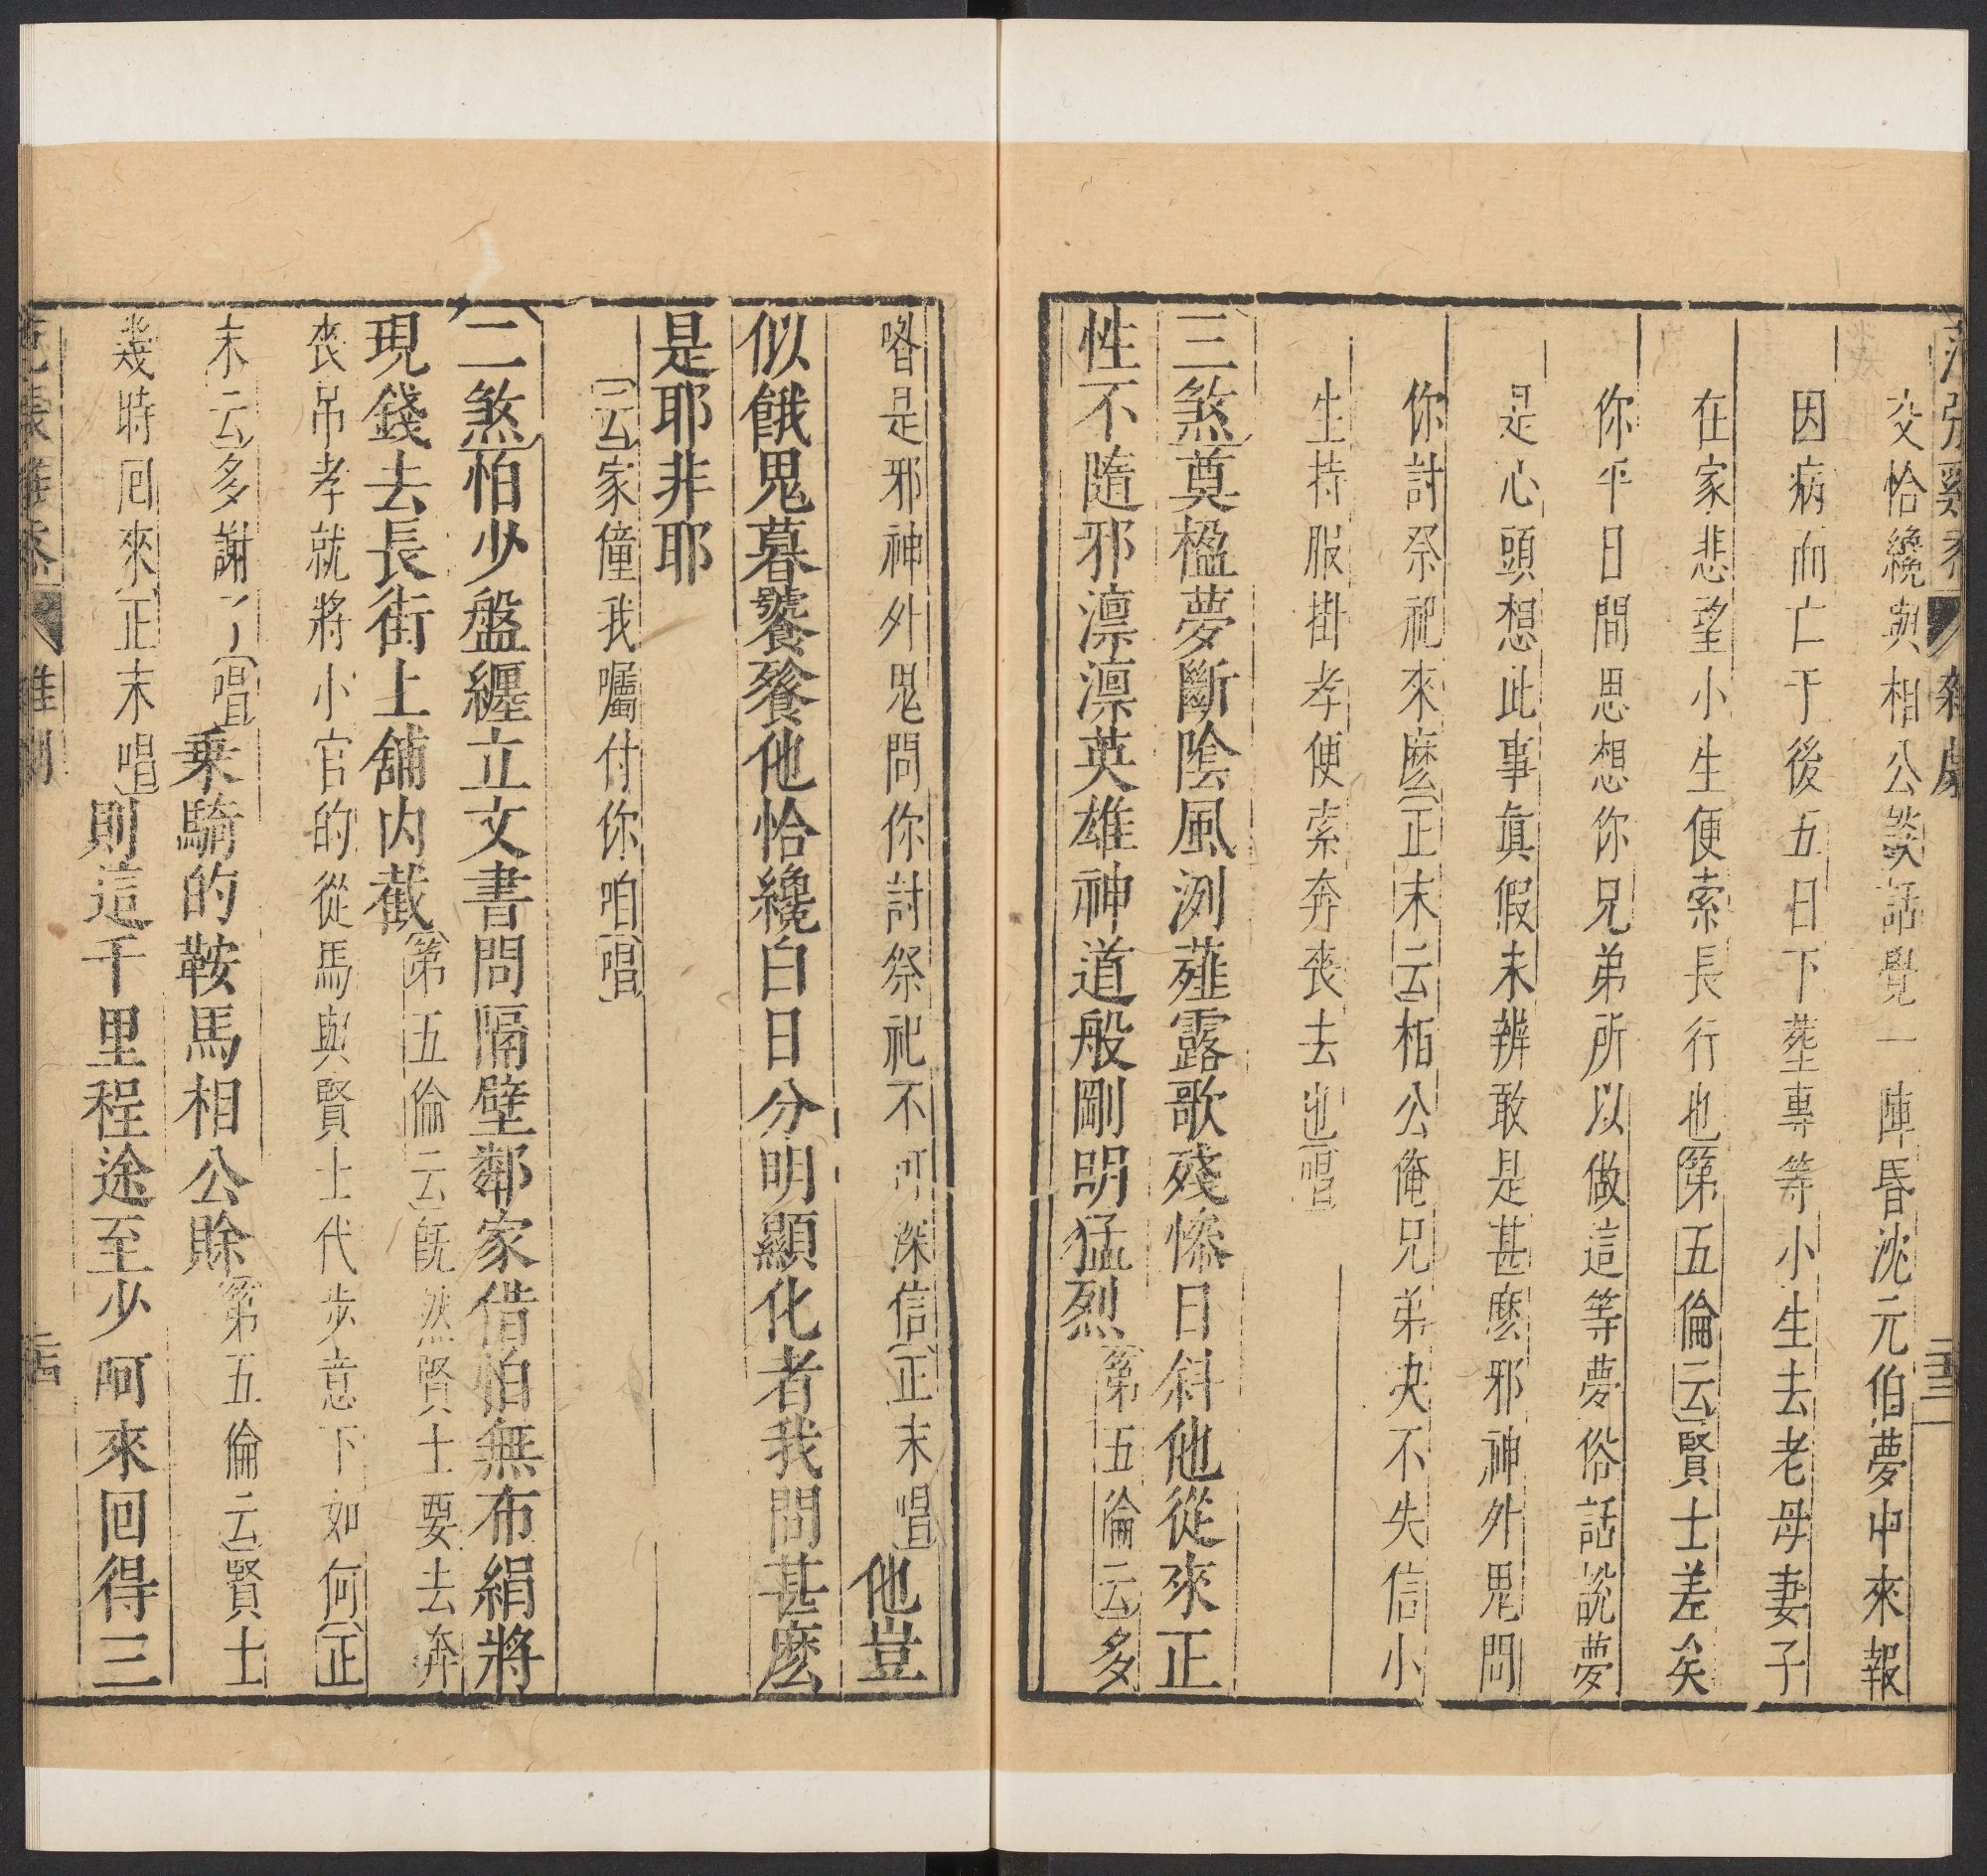 范張雞黍 雜劇 二十三
交恰纔與相公談話覺一陣昏沈元伯夢中來報
因病而亡于後五日下塟專等小生去老母妻子
在家悲望小生便索長行也〔第五倫云〕賢士差矣
你平日間思想你兄弟所以做這等夢俗話說夢
是心頭想此事眞假未辨敢是甚麽邪神外鬼問
你討祭祀來麽〔正末云〕相公俺兄弟決不失信小
生持服掛孝便索奔喪去也〔唱〕
〔三煞〕奠楹夢斷陰風洌薤露歌殘慘日斜他從來正
性不隨邪凛凛英雄神道般剛明猛烈〔第五倫云〕多
喒是邪神外鬼問你討祭祀不可深信〔正末唱〕他豈
似餓鬼暮饕餮他恰纔白日分明顯化者我問甚麽
是耶非耶
〔云〕家僮我囑付你咱〔唱〕
〔二煞〕怕少盤纏立文書問隔壁鄰家借怕無布絹將
現錢去長街上舖內截〔第五倫云〕旣然賢士要去奔
喪吊孝就將小官的從馬與賢士代步意下如何〔正
末云〕多謝了〔唱〕乗騎的鞍馬相公賒〔第五倫云〕賢士
幾時囘來〔正末唱〕則這千里程途至少呵來回得三
范張雞黍 雜劇